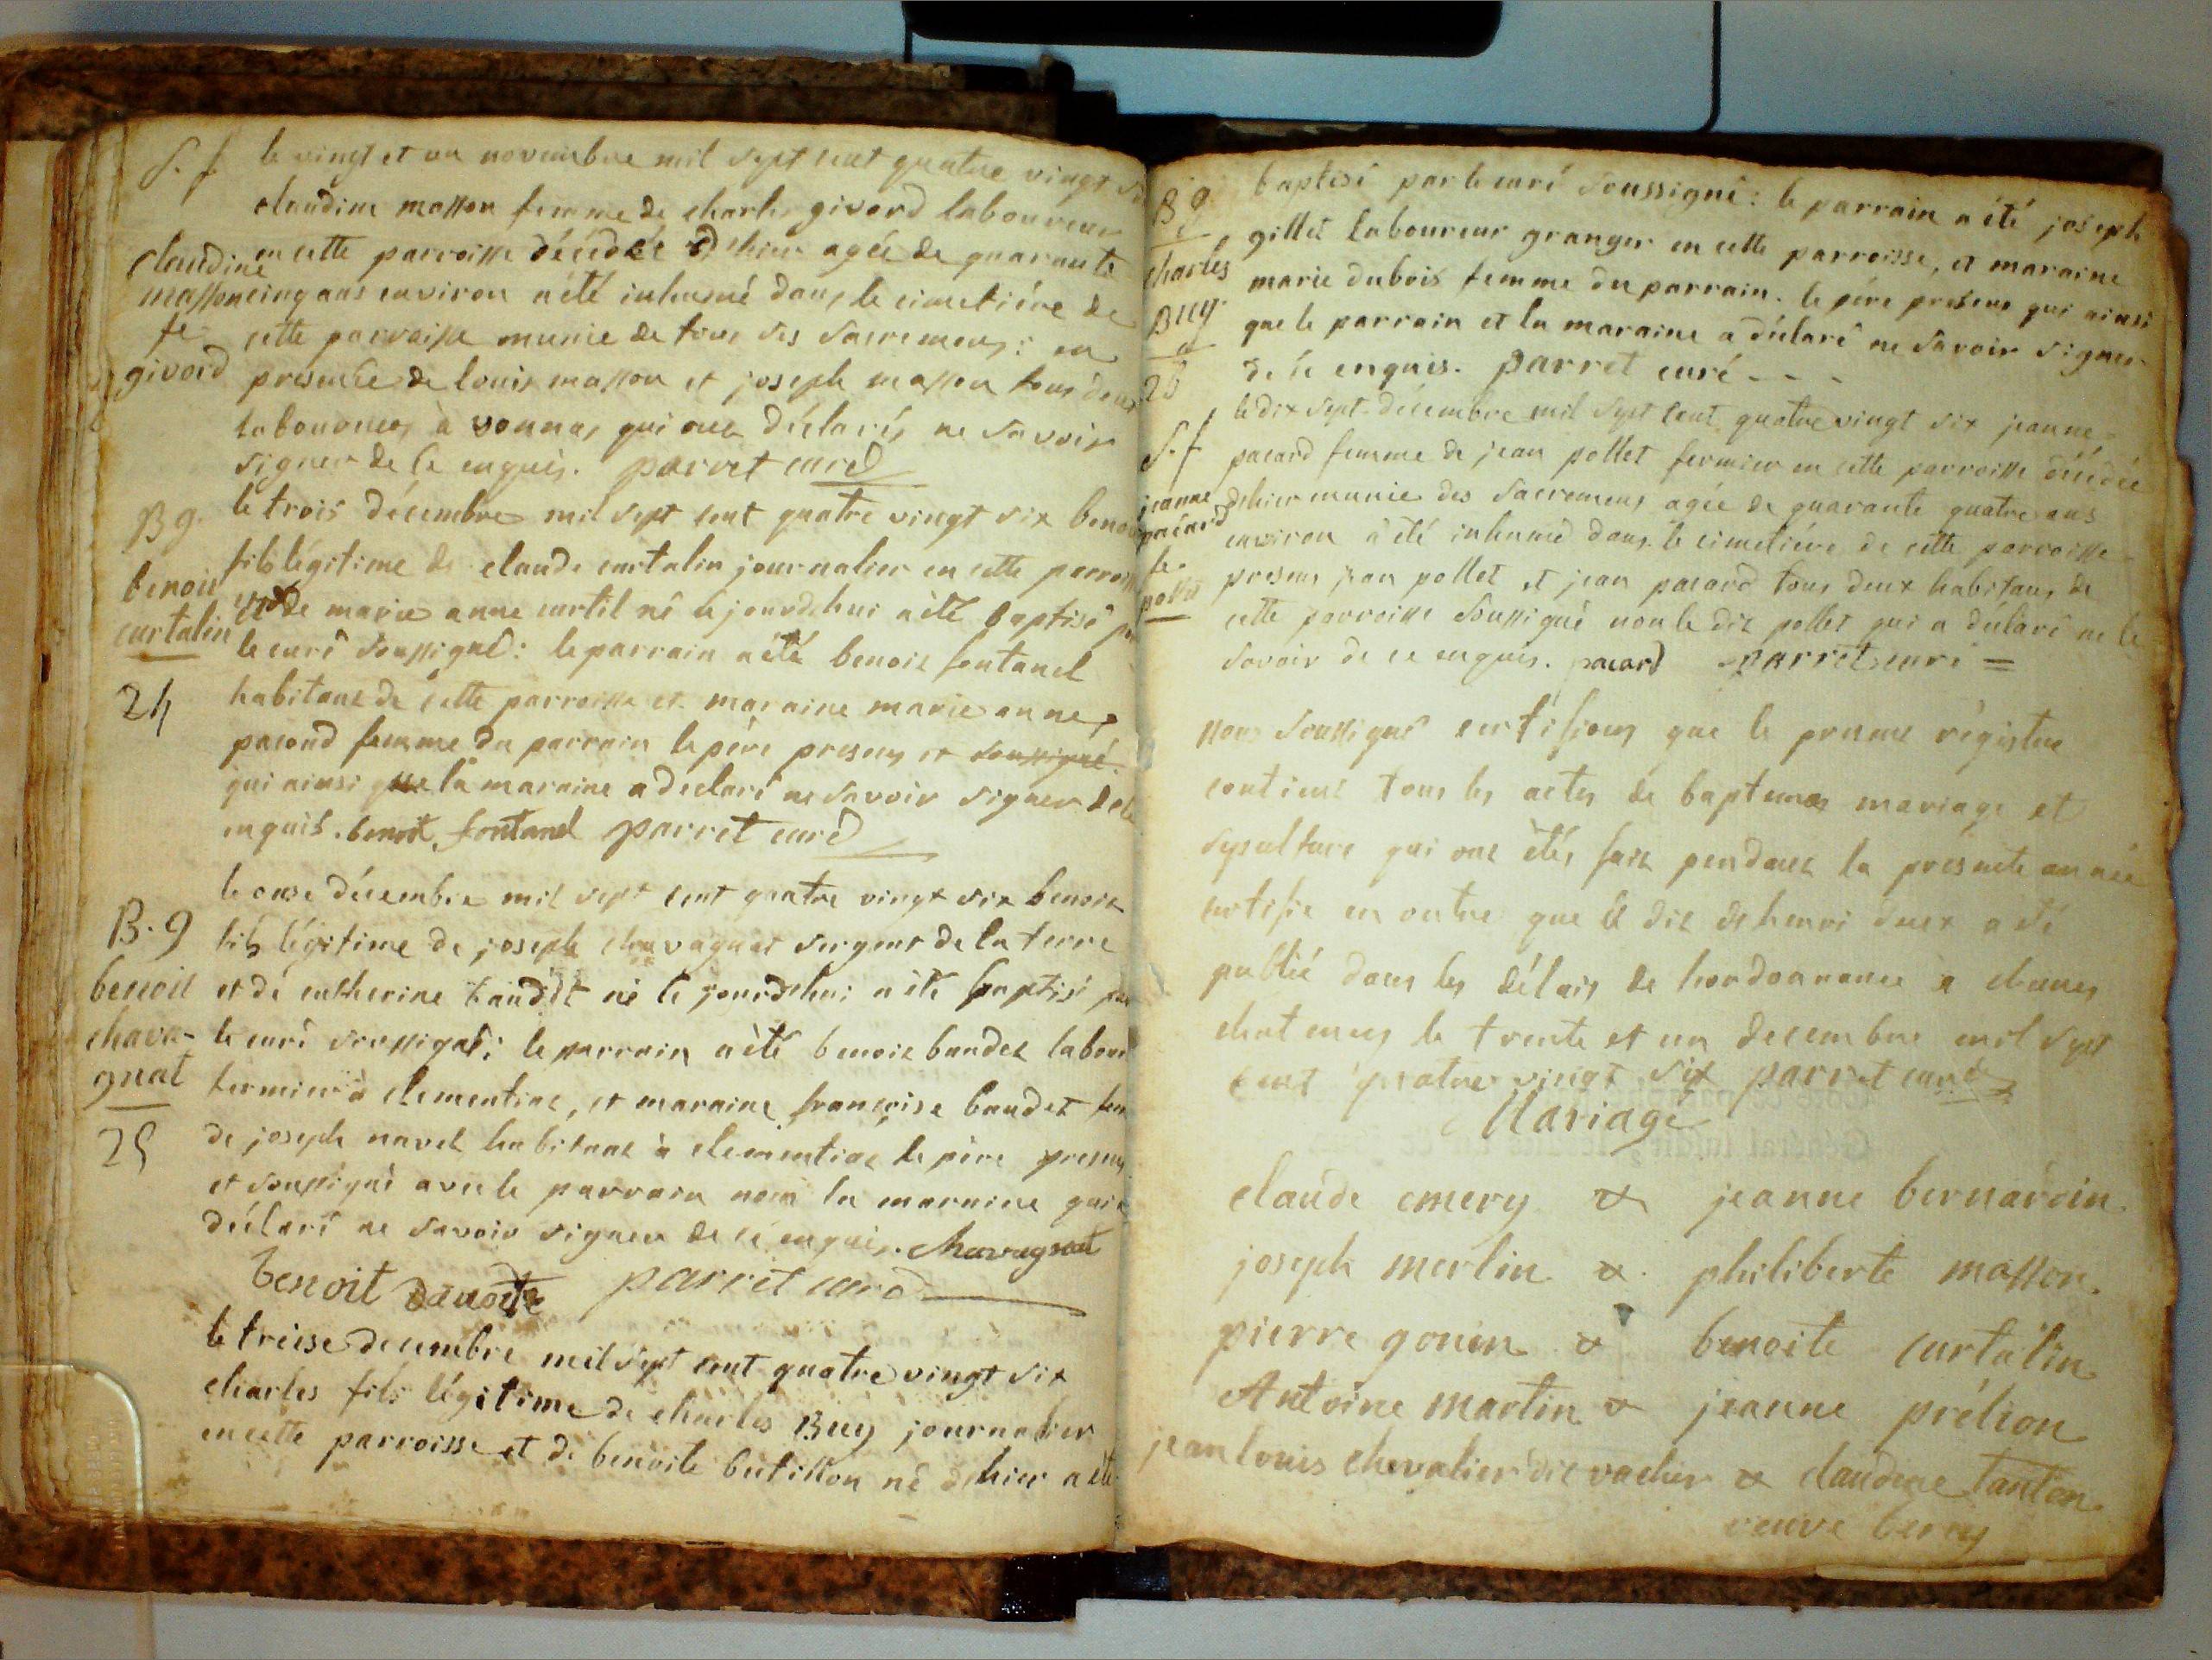 S. f
le vingt et un novembre mil sept cent quatre vingt six
claudine masson femme de charles givord laboureur
claudine
masson
fe
givord
en cette parroisse décédée d'hier agée de quarante
cinq ans environ a été inhumé dans le cimetière de
cette parroisse munie de tous ses sacremens : en
presence de louis masson et joseph masson tous deux
laboureurs à vonnas qui ont déclarés ne savoir
signer de ce enquis. parret curé
B g.
benoit
curtalin
24
le trois décembre mil sept cent quatre vingt six benoit
fils légitime de claude curtalin journalier en cette parroisse
et de marie anne curtil né ce jourdehui a été baptisé par
le curé soussigné : le parrain a été benoit fontanel
habitant de cette parroisse et maraine marie anne
pacoud femme du parrain le père presens et soussigné
qui ainsi que la maraine a declaré ne savoir signer de ce
enquis. benoit fontanel parret curé
B. g
benoit
chava-
gnat
25
le onze décembre mil sept cent quatre vingt six benoit
fils légitime de joseph chavagnat sergent de la terre
et de catherine baudet né ce jourdehui a été baptisé par
le curé soussigné : le parrain a été benoit baudet labour
fermier à clementiat, et maraine françoise baudet fem
de joseph navel habitant à clementiat le père presens
et soussigné avec le parrain non la maraine qui a
déclaré ne savoir signer de ce enquis. Chavagnat
benoit parret curé
le treise decembre mil sept cent quatre vingt six
charles fils légitime de charles Buy journalier
en cette parroisse et de benoite butillon né dehier a été
B g.
charles
Buy
26
baptisé par le curé soussigné : le parrain a été joseph
gillet laboureur granger en cette parroisse, et maraine
marie dubois femme du parrain. le père presens qui ainsi
que le parrain et la maraine a déclaré ne savoir signer
de ce enquis. parret curé - - -
S. f
jeanne
pacard
fe
pollet
le dix sept décembre mil sept cent quatre vingt six jeanne
pacard femme de jean pollet fermier en cette parroisse décédée
dehier munie des sacremens agée de quarante quatre ans
environ a été inhumé dans le cimetière de cette parroisse
presens jean pollet et jean pacard tous deux habitans de
cette parroisse soussigné non le dit pollet qui a déclaré ne le
savoir de ce enquis. pacard parret curé =
nous soussigné certifions que le present régistre
contient tous les actes de baptemes mariage et
sepulture qui ont étés fait pendant la presente année
certifie en outre que le dit de henri deux a été
publié dans les délais de l'ordonnance a chanes
chatenay le trente et un decembre mil sept
cent quatre vingt six parret curé
Mariage
claude emery & jeanne bernardin.
joseph merlin & philiberte masson.
pierre gonin & benoite curtalin
Antoine martin & jeanne prélion
jean louis chevalier dit vacher & claudine tanton
veuve